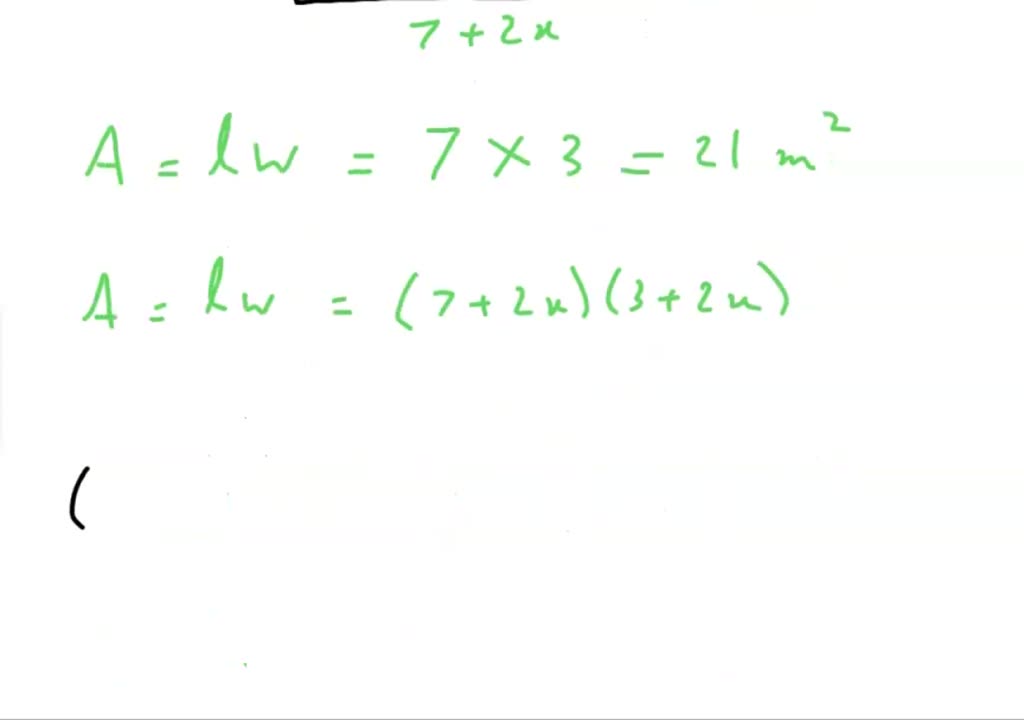 7 + 2x
A = lw = 7 × 3 = 21 m²
A = lw = (7 + 2x)(3 + 2x)
(